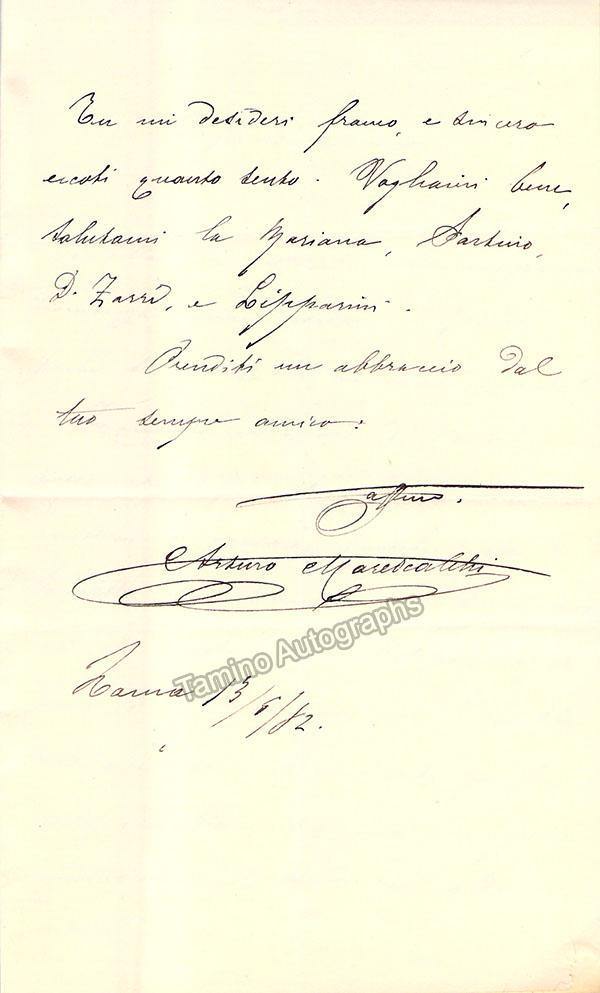 Tu mi desideri franco, e sincero
eccoti quanto sento. Vogliami bene,
salutami la Mariana, Sarturo,
D. Zarri, e Lipparini.
Prenditi un abbraccio dal
tuo sempre amico:
affmo.
Arturo Marescalchi
Tamino Autographs
13/6/82.